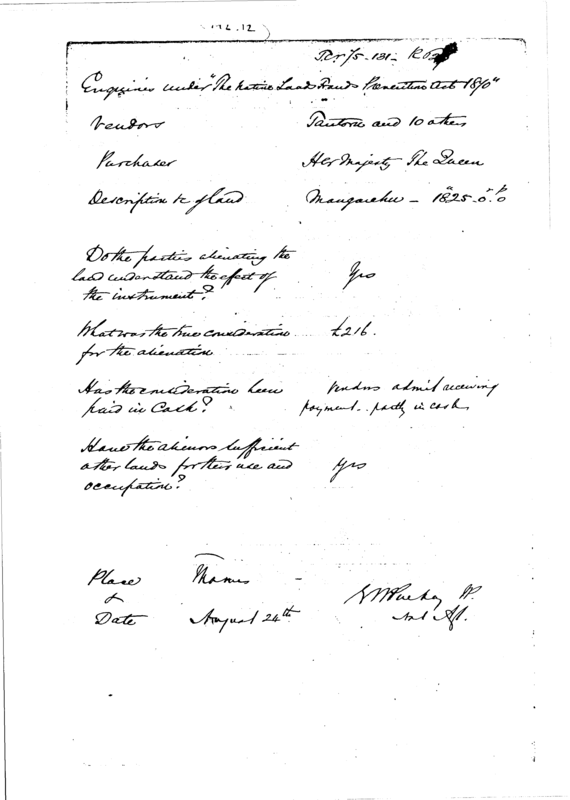 Enquiries under "The Native Land Frauds Prevention Act 1870"
Vendors and 10 others
Purchaser Her Majesty The Queen
Description &c of land - 1825 - 0. 0
Do the parties alienating the
land understand the effect of
the instrument? Yes
What was the true consideration £216.
for the alienation
Has the consideration been Vendors admit receiving
paid in Cash? payment - partly in cash
Have the alienors sufficient
other lands for their use and Yes
occupation?
Place Thames
&
Date August 24th